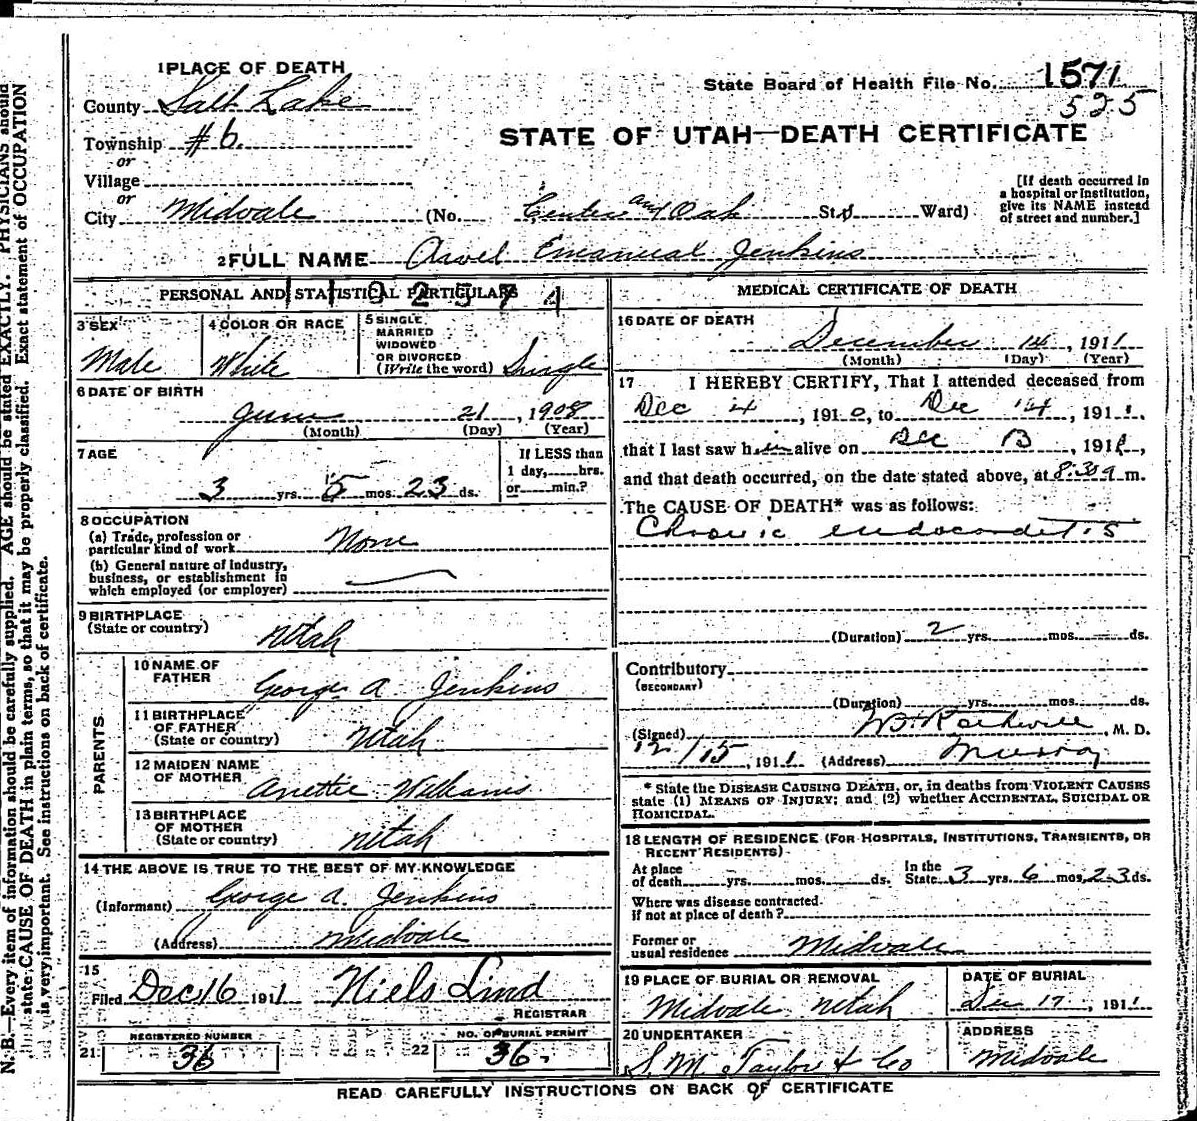 1 PLACE OF DEATH
State Board of Health File No. 1571
525
County Salt Lake
STATE OF UTAH—DEATH CERTIFICATE
Township #6.
or
Village
or
City Midvale (No. Center and Oak St. Ward)
[If death occurred in
a hospital or institution,
give its NAME instead
of street and number.]
2 FULL NAME Arvel Emanual Jenkins
PERSONAL AND STATISTICAL PARTICULARS
3 SEX
Male
4 COLOR OR RACE
White
5 SINGLE,
MARRIED
WIDOWED
OR DIVORCED
(Write the word) Single
6 DATE OF BIRTH
June 21, 1908
(Month) (Day) (Year)
7 AGE
3 yrs. 5 mos. 23 ds.
If LESS than
1 day, hrs.
or min.?
8 OCCUPATION
(a) Trade, profession or
particular kind of work None
(b) General nature of industry,
business, or establishment in
which employed (or employer)
9 BIRTHPLACE
(State or country)
Utah
PARENTS
10 NAME OF
FATHER
George A. Jenkins
11 BIRTHPLACE
OF FATHER
(State or country) Utah
12 MAIDEN NAME
OF MOTHER
Anettie Williams
13 BIRTHPLACE
OF MOTHER
(State or country) Utah
14 THE ABOVE IS TRUE TO THE BEST OF MY KNOWLEDGE
(Informant) George A. Jenkins
(Address) Midvale
15
Filed Dec 16 1911 Niels Lind
REGISTRAR
REGISTERED NUMBER
21 36
NO. OF BURIAL PERMIT
22 36.
MEDICAL CERTIFICATE OF DEATH
16 DATE OF DEATH
December 14, 1911
(Month) (Day) (Year)
17 I HEREBY CERTIFY, That I attended deceased from
Dec 4, 1910, to Dec 14, 1911.
that I last saw him alive on Dec 13, 1911,
and that death occurred, on the date stated above, at 8:30 a m.
The CAUSE OF DEATH* was as follows:
Chronic endocarditis
(Duration) 2 yrs. mos. ds.
Contributory
(SECONDARY)
(Duration) yrs. mos. ds.
(Signed) M. D.
12/15, 1911 (Address) Murray
* State the DISEASE CAUSING DEATH, or, in deaths from VIOLENT CAUSES
state (1) MEANS OF INJURY; and (2) whether ACCIDENTAL, SUICIDAL OR
HOMICIDAL.
18 LENGTH OF RESIDENCE (FOR HOSPITALS, INSTITUTIONS, TRANSIENTS, OR
RECENT RESIDENTS)
At place
of death yrs. mos. ds.
In the
State 3 yrs. 6 mos. 23 ds.
Where was disease contracted.
If not at place of death?
Former or
usual residence Midvale
19 PLACE OF BURIAL OR REMOVAL
Midvale Utah
DATE OF BURIAL
Dec 17, 1911
20 UNDERTAKER
S. M. Taylor & Co
ADDRESS
Midvale
READ CAREFULLY INSTRUCTIONS ON BACK OF CERTIFICATE
N. B.—Every item of information should be carefully supplied. AGE should be stated EXACTLY. PHYSICIANS should
state CAUSE OF DEATH in plain terms, so that it may be properly classified. Exact statement of OCCUPATION
is very important. See instructions on back of certificate.